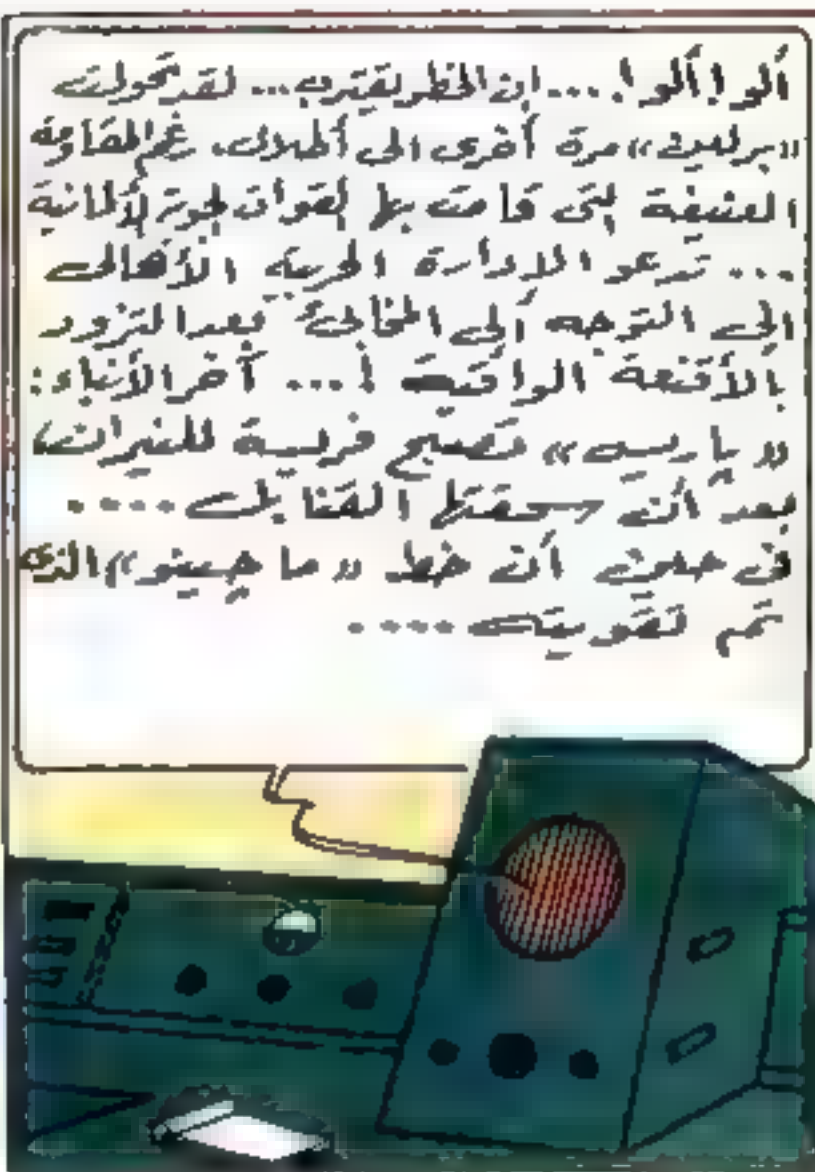 ألو! ألو!... إن الخطر يقترب... لقد تحولت
«برلين» مرة أخرى الى أطلال، رغم المقاومة
العنيفة التى قامت بها القوات الجوية الألمانية
... تدعو الإدارة الحربية الأهالى
الى التوجه إلى المخابئ بعد التزود
بالأقنعة الواقية !... آخر الأنباء:
«باريس» تصبح فريسة للنيران،
بعد أن سحقتها القنابل ....
فى حين أن خط «ماجينو» الذى
تم تقويته ....